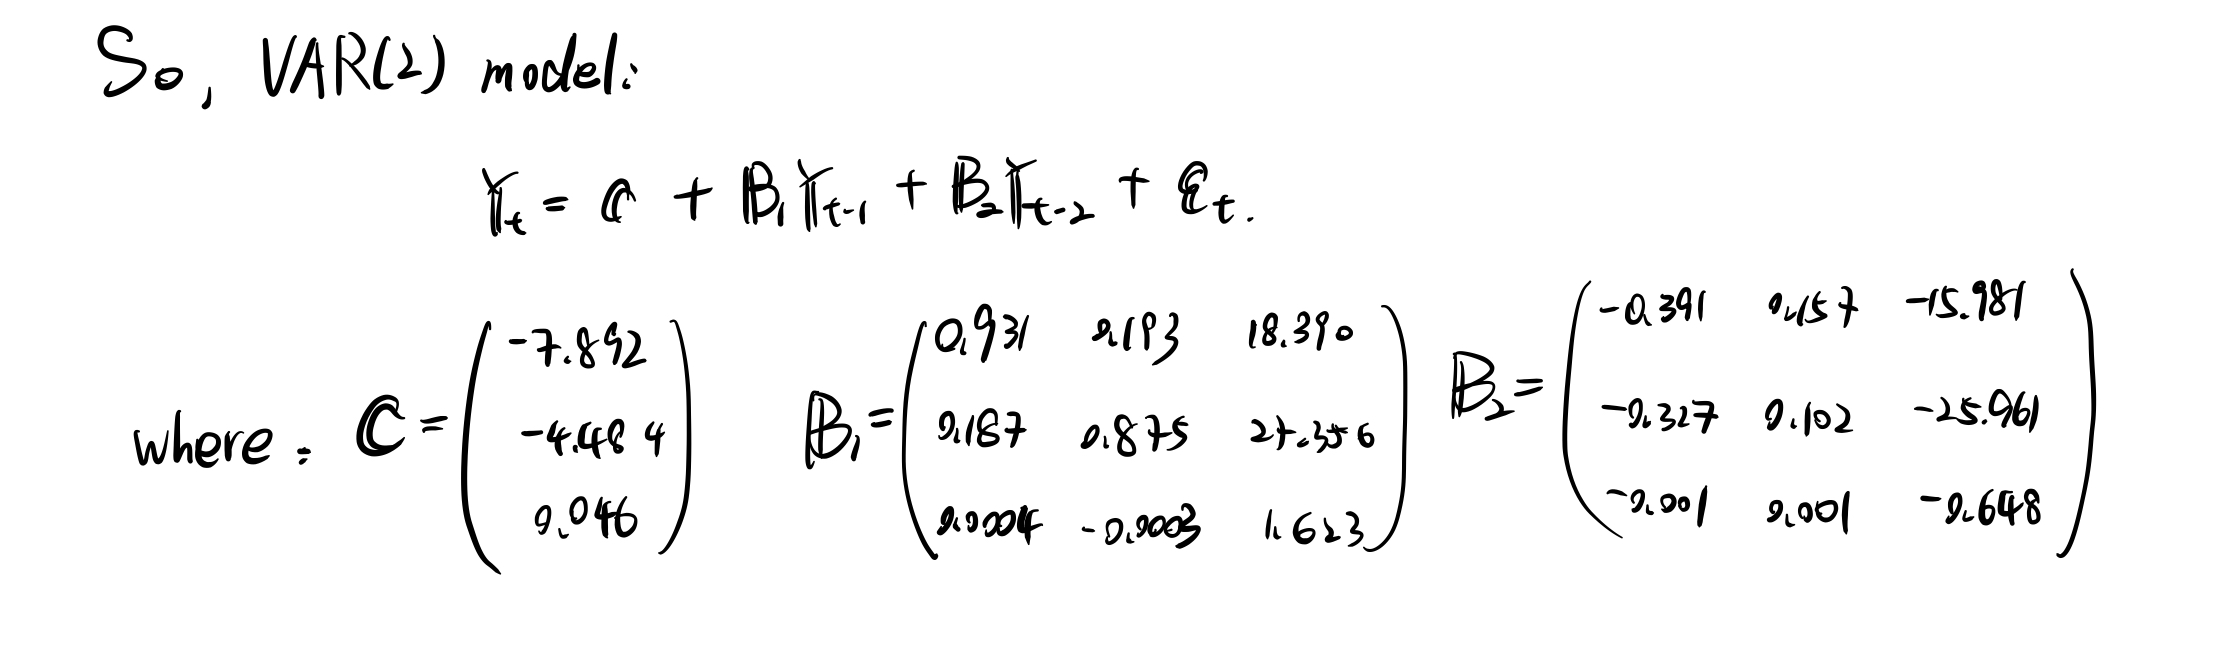 So, VAR(2) model:
𝕐ₜ = ℂ + 𝔹₁𝕐ₜ₋₁ + 𝔹₂𝕐ₜ₋₂ + εₜ.
where: ℂ = (-7.892 -4.484 0.046) 𝔹₁ = (0.931 0.193 18.390 0.187 0.875 27.356 0.0004 -0.0003 1.623) 𝔹₂ = (-0.391 0.157 -15.981 -0.327 0.102 -25.961 -0.001 0.001 -0.648)